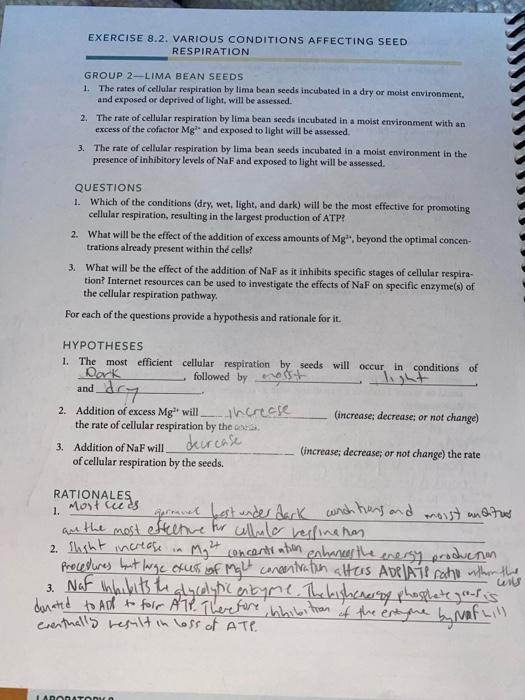 EXERCISE 8.2. VARIOUS CONDITIONS AFFECTING SEED
RESPIRATION
GROUP 2—LIMA BEAN SEEDS
1. The rates of cellular respiration by lima bean seeds incubated in a dry or moist environment,
and exposed or deprived of light, will be assessed.
2. The rate of cellular respiration by lima bean seeds incubated in a moist environment with an
excess of the cofactor Mg²⁺ and exposed to light will be assessed.
3. The rate of cellular respiration by lima bean seeds incubated in a moist environment in the
presence of inhibitory levels of NaF and exposed to light will be assessed.
QUESTIONS
1. Which of the conditions (dry, wet, light, and dark) will be the most effective for promoting
cellular respiration, resulting in the largest production of ATP?
2. What will be the effect of the addition of excess amounts of Mg²⁺, beyond the optimal concen-
trations already present within the cells?
3. What will be the effect of the addition of NaF as it inhibits specific stages of cellular respira-
tion? Internet resources can be used to investigate the effects of NaF on specific enzyme(s) of
the cellular respiration pathway.
For each of the questions provide a hypothesis and rationale for it.
HYPOTHESES
1. The most efficient cellular respiration by seeds will occur in conditions of
Dark, followed by moist, light,
and dry
2. Addition of excess Mg²⁺ will increase (increase; decrease; or not change)
the rate of cellular respiration by the
3. Addition of NaF will decrease (increase; decrease; or not change) the rate
of cellular respiration by the seeds.
RATIONALES
1. Most seeds best under dark conditions and moist
are the most effective for cellular respiration
2. Slight increase in Mg²⁺ concentration enhances the energy production
Procedures but large excess of Mg²⁺ concentration alters ADP/ATP ratio within the
cells
3. NaF inhibits the glycolytic enzyme. The high energy phosphate group is
donated to ADP to form ATP. Therefore, inhibition of the enzyme by NaF will
eventually result in loss of ATP.